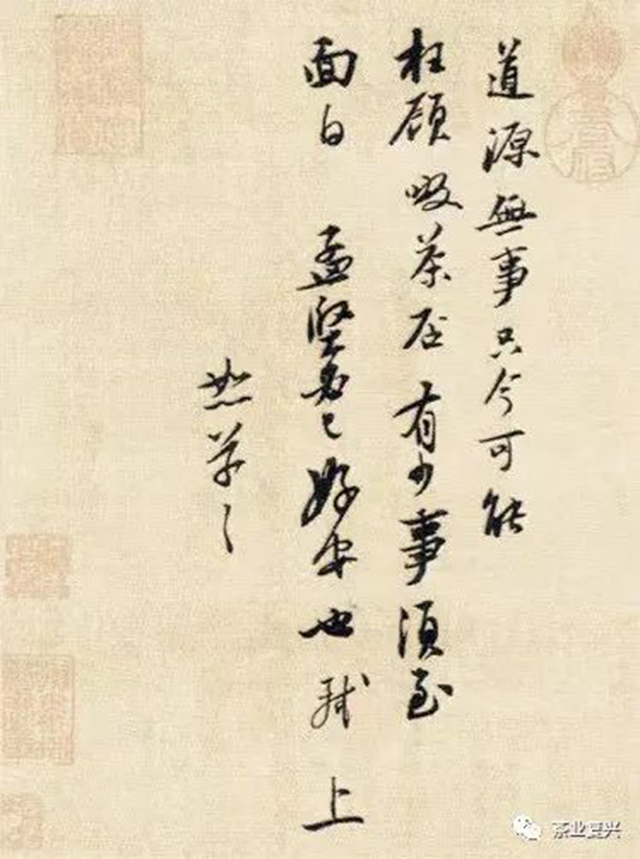 道源無事只今可能
枉顧啜茶否有少事須至
面白 孟堅必已好安也 軾 上
恕草々
茶业复兴